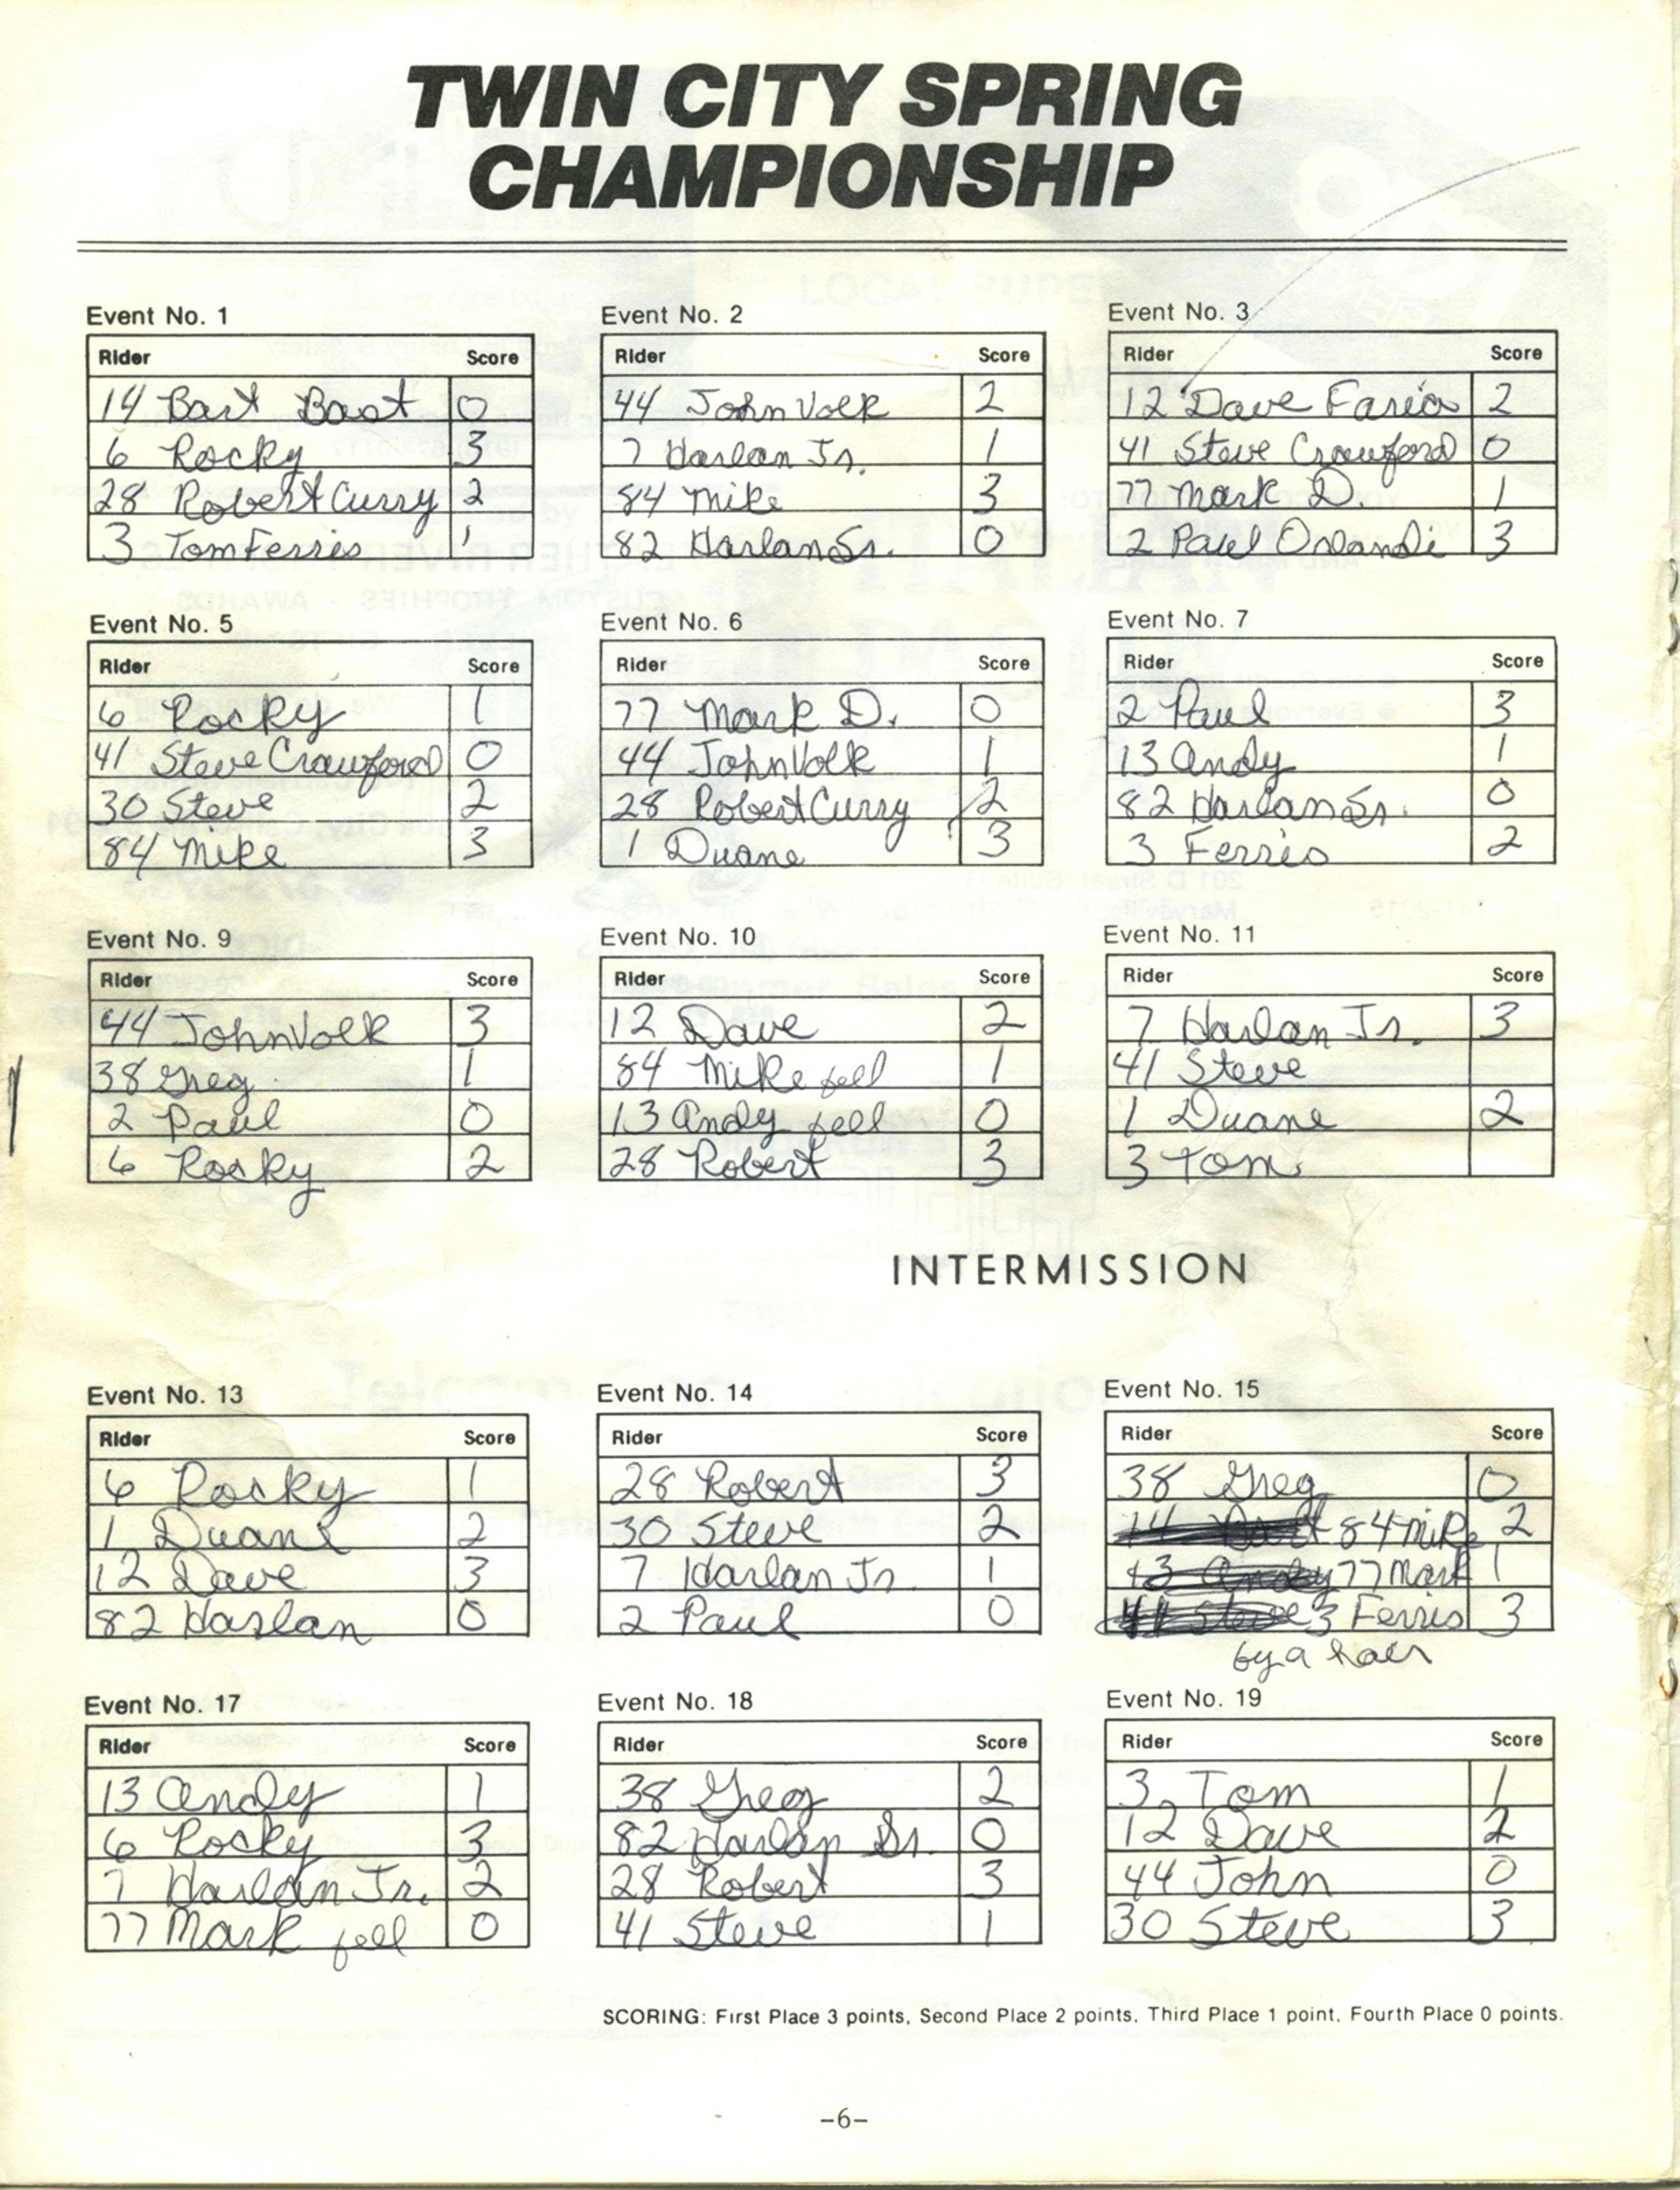 TWIN CITY SPRING
CHAMPIONSHIP
Event No. 1
Rider Score
14 Bart Bast 0
6 Rocky 3
28 Robert Curry 2
3 Tom Ferris 1
Event No. 2
Rider Score
44 John Volk 2
7 Harlan Jr. 1
84 Mike 3
82 Harlan Sr. 0
Event No. 3
Rider Score
12 Dave Faria 2
41 Steve Crawford 0
77 Mark D. 1
2 Paul Orlandi 3
Event No. 5
Rider Score
6 Rocky 1
41 Steve Crawford 0
30 Steve 2
84 Mike 3
Event No. 6
Rider Score
77 Mark D. 0
44 John Volk 1
28 Robert Curry 2
1 Duane 3
Event No. 7
Rider Score
2 Paul 3
13 Andy 1
82 Harlan Sr. 0
3 Ferris 2
Event No. 9
Rider Score
44 John Volk 3
38 Greg 1
2 Paul 0
6 Rocky 2
Event No. 10
Rider Score
12 Dave 2
84 Mike fell 1
13 Andy fell 0
28 Robert 3
Event No. 11
Rider Score
7 Harlan Jr. 3
41 Steve
1 Duane 2
3 Tom
INTERMISSION
Event No. 13
Rider Score
6 Rocky 1
1 Duane 2
12 Dave 3
82 Harlan 0
Event No. 14
Rider Score
28 Robert 3
30 Steve 2
7 Harlan Jr. 1
2 Paul 0
Event No. 15
Rider Score
38 Greg 0
84 Mike 2
13 Andy 77 Mark 1
41 Steve 3 Ferris 3
by a hair
Event No. 17
Rider Score
13 Andy 1
6 Rocky 3
7 Harlan Jr. 2
77 Mark fell 0
Event No. 18
Rider Score
38 Greg 2
82 Harlan Sr. 0
28 Robert 3
41 Steve 1
Event No. 19
Rider Score
3 Tom 1
12 Dave 2
44 John 0
30 Steve 3
SCORING: First Place 3 points, Second Place 2 points, Third Place 1 point, Fourth Place 0 points.
-6-